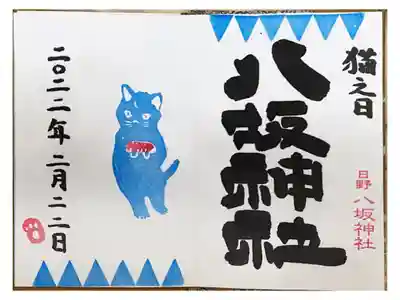 猫之日
日野 八坂神社
八坂神社
二〇二二年 二月二二日